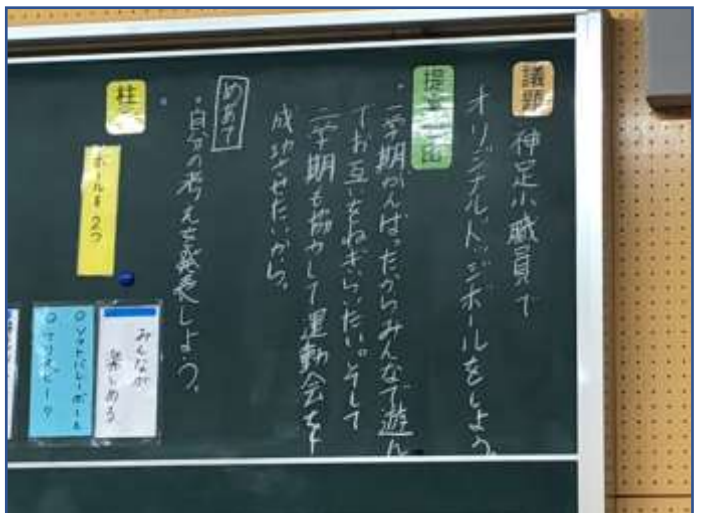 議題
神足小職員で
オリジナルドッジボールをしよう。
提案理由
・一学期がんばったからみんなで遊ん
でお互いをねぎらいたい。そして
二学期も協力して運動会を
成功させたいから。
めあて
・自分の考えを発表しよう。
柱
ボールを2つ
みんなが
楽しめる
○ソフトバレーボール